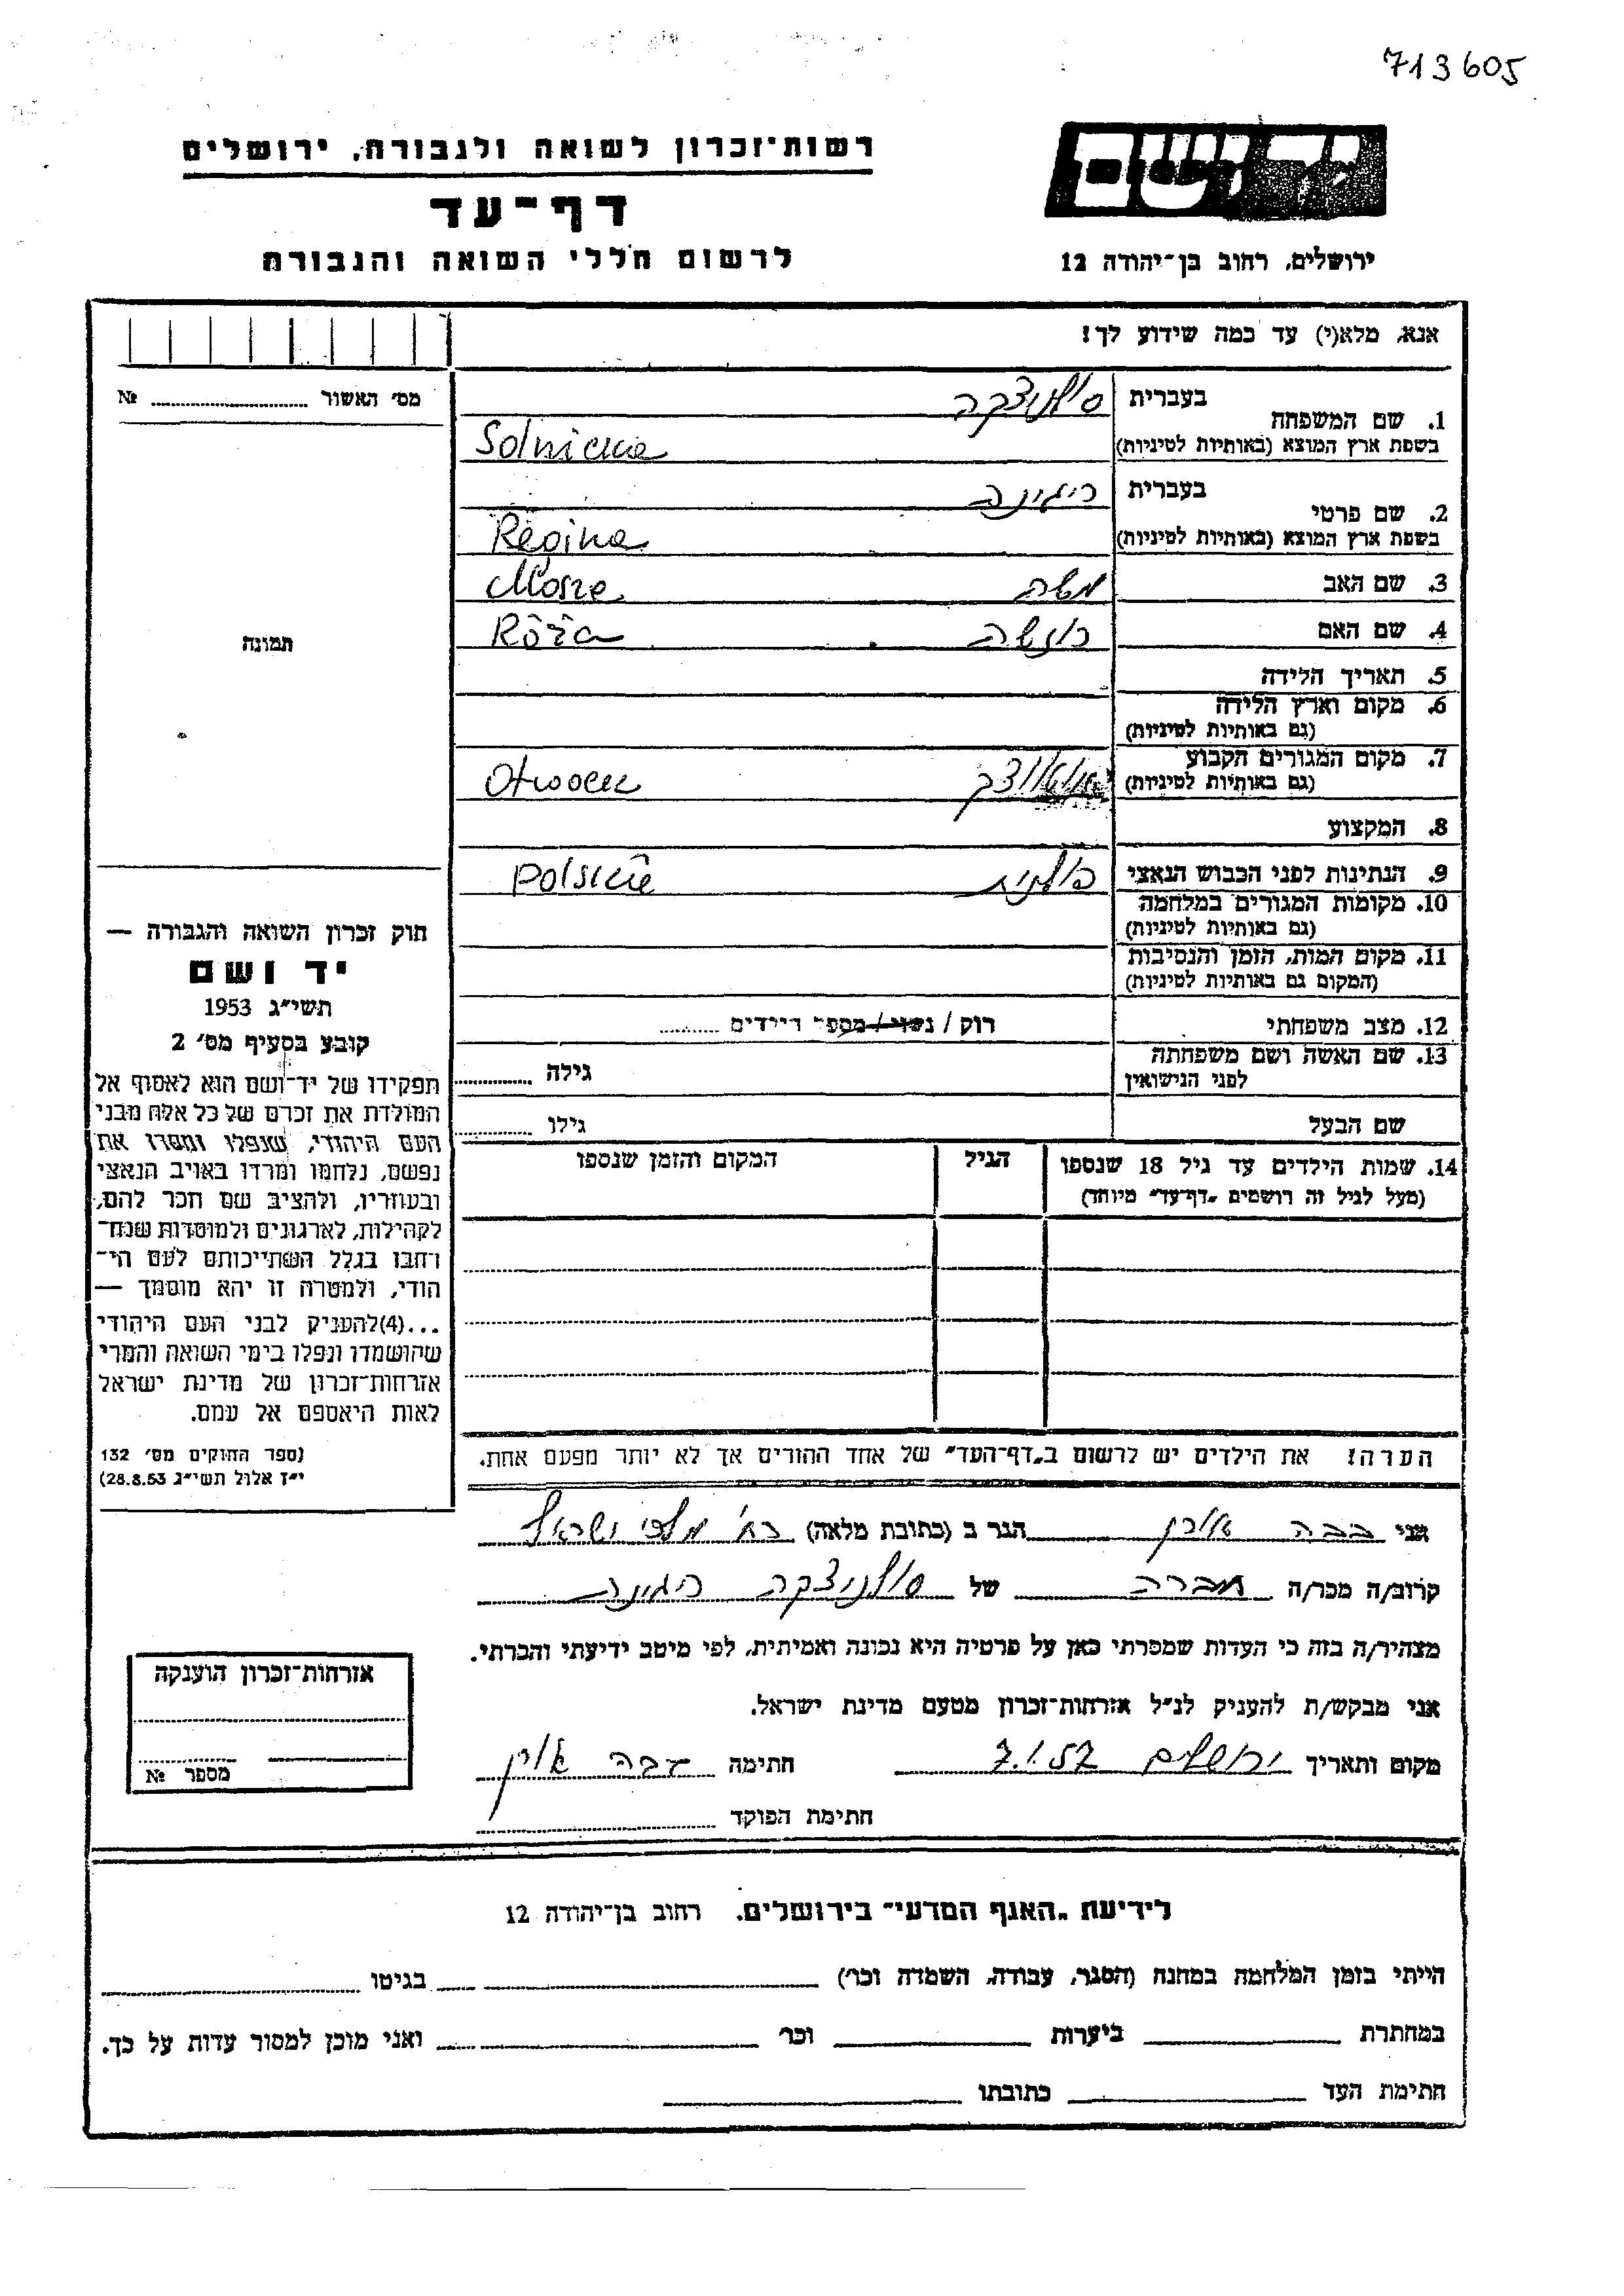 713605
יד ושם
רשות־זכרון לשואה ולגבורה, ירושלים
דף־עד
ירושלים, רחוב בן־יהודה 12
לרשום חללי השואה והגבורה
אנא, מלא(י) עד כמה שידוע לך!
מס׳ האשור № ........
1. שם המשפחה בעברית סולניצקה
בשפת ארץ המוצא (באותיות לטיניות) Solnicka
2. שם פרטי בעברית ריגינה
בשפת ארץ המוצא (באותיות לטיניות) Regina
3. שם האב משה Mosze
4. שם האם רוז'ה Róża
תמונה
5. תאריך הלידה
6. מקום וארץ הלידה
(גם באותיות לטיניות)
7. מקום המגורים הקבוע
(גם באותיות לטיניות) אוטווצק Otwock
8. המקצוע
9. הנתינות לפני הכבוש הנאצי פולנית Polskie
10. מקומות המגורים במלחמה
(גם באותיות לטיניות)
11. מקום המות, הזמן והנסיבות
(המקום גם באותיות לטיניות)
12. מצב משפחתי רוק / נשוי / מספר הילדים ........
13. שם האשה ושם משפחתה
לפני הנישואין גילה ........
שם הבעל גילו ........
14. שמות הילדים עד גיל 18 שנספו הגיל המקום והזמן שנספו
(מעל לגיל זה רושמים „דף־עד״ מיוחד)
חוק זכרון השואה והגבורה —
יד ושם
תשי״ג 1953
קובע בסעיף מס׳ 2
תפקידו של יד־ושם הוא לאסוף אל
המולדת את זכרם של כל אלה מבני
העם היהודי, שנפלו ומסרו את
נפשם, נלחמו ומרדו באויב הנאצי
ובעוזריו, ולהציב שם וזכר להם,
לקהילות, לארגונים ולמוסדות שנח־
רבו בגלל השתייכותם לעם הי־
הודי, ולמטרה זו יהא מוסמך —
...(4)להעניק לבני העם היהודי
שהושמדו ונפלו בימי השואה והמרי
אזרחות־זכרון של מדינת ישראל
לאות היאספם אל עמם.
(ספר החוקים מס׳ 132
י״ז אלול תשי״ג 28.8.53)
הערה! את הילדים יש לרשום ב„דף־העד״ של אחד ההורים אך לא יותר מפעם אחת.
אני הגר ב (כתובת מלאה) רח' מלכי ישראל
קרוב/ה מכר/ה חברה של סולניצקה ריגינה
מצהיר/ה בזה כי העדות שמסרתי כאן על פרטיה היא נכונה ואמיתית, לפי מיטב ידיעתי והכרתי.
אני מבקש/ת להעניק לנ״ל אזרחות־זכרון מטעם מדינת ישראל.
מקום ותאריך ירושלים 7.1.57 חתימה
חתימת הפוקד
אזרחות־זכרון הוענקה
מספר №
לידיעת „האגף המדעי״ בירושלים, רחוב בן־יהודה 12
הייתי בזמן המלחמה במחנה (הסגר, עבודה, השמדה וכר׳) בגיטו
במחתרת ביערות וכר׳ ואני מוכן למסור עדות על כך.
חתימת העד כתובתו